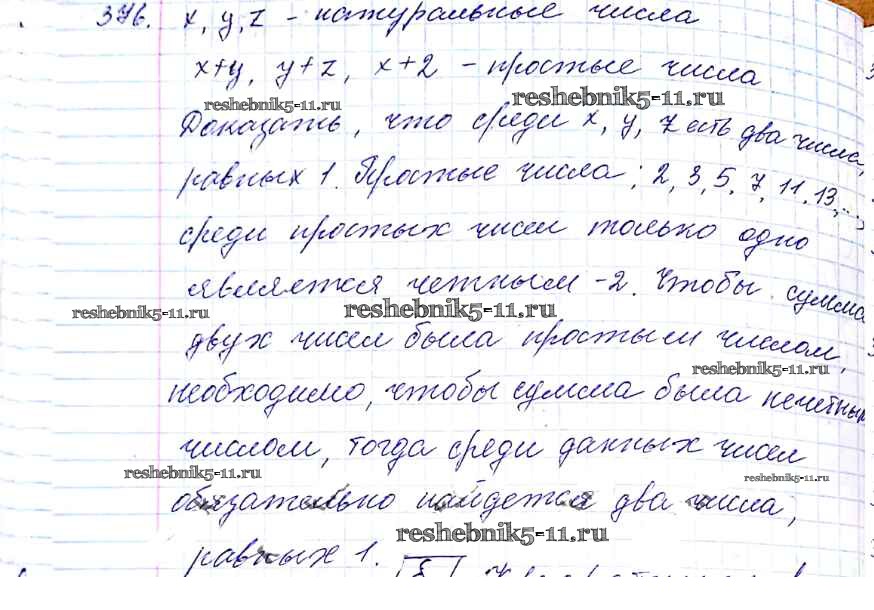 376. x, y, z - натуральные числа
x+y, y+z, x+z - простые числа
reshebnik5-11.ru reshebnik5-11.ru
Доказать, что среди x, y, z есть два числа,
равных 1. Простые числа: 2, 3, 5, 7, 11, 13, ...,
среди простых чисел только одно
является четным - 2. Чтобы сумма
reshebnik5-11.ru reshebnik5-11.ru
двух чисел была простым числом,
reshebnik5-11.ru
необходимо, чтобы сумма была нечетным
числом, тогда среди данных чисел
reshebnik5-11.ru reshebnik5-11.ru
обязательно найдется два числа,
reshebnik5-11.ru
равных 1.